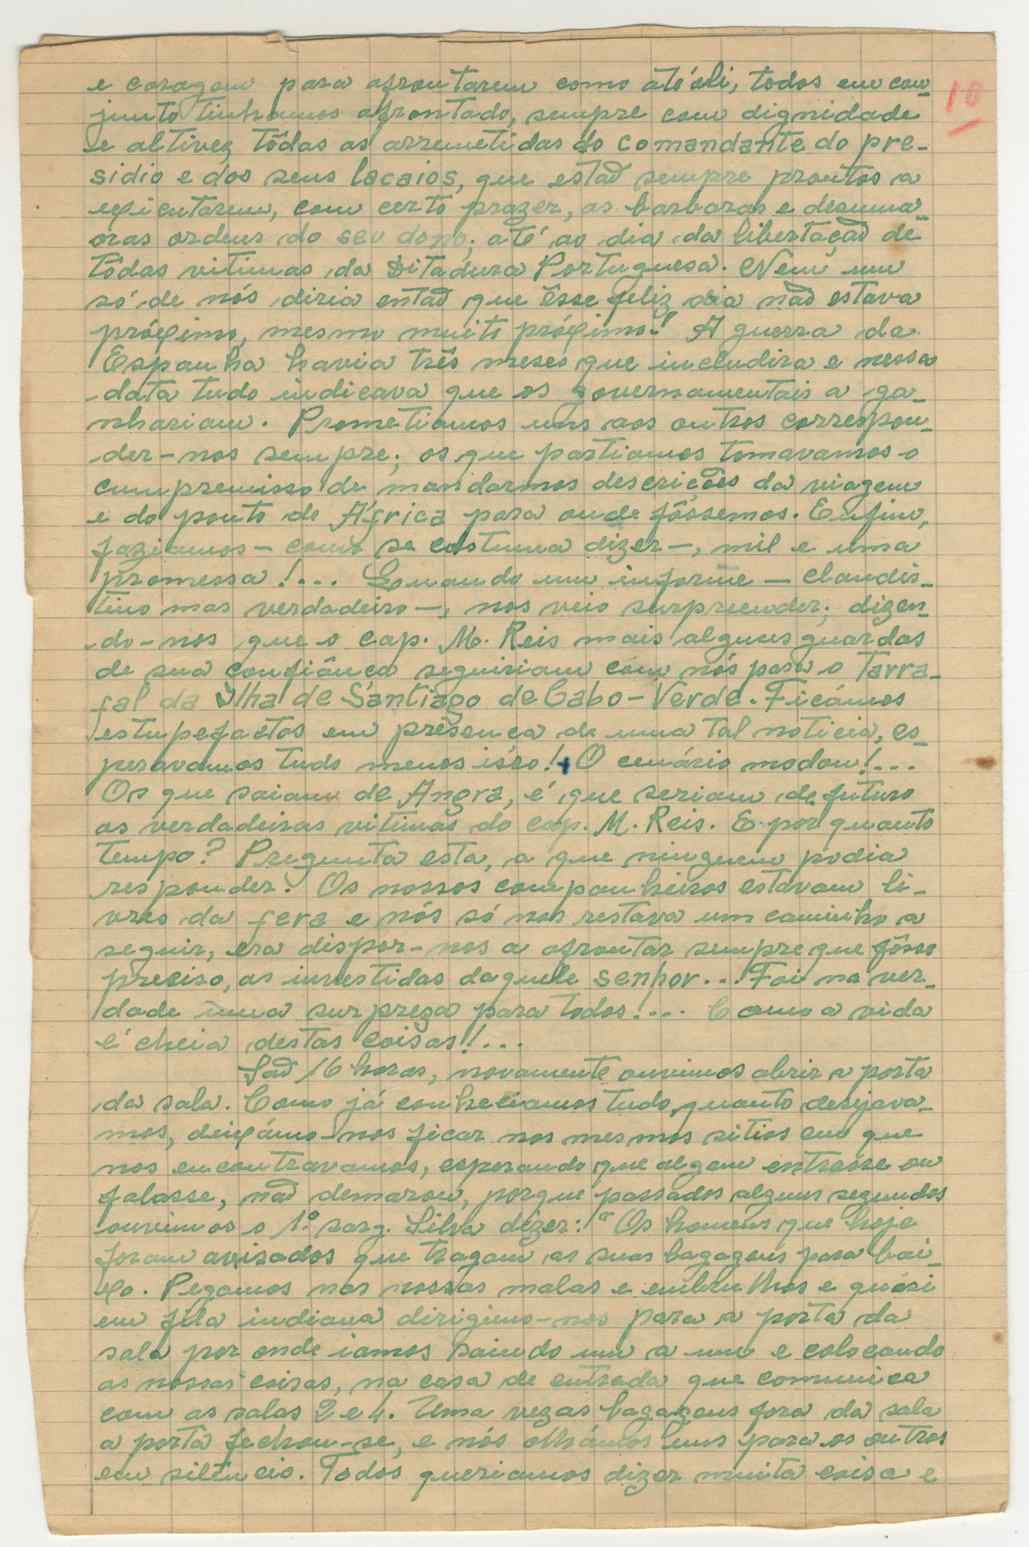 10
e coragem para afrontarem como até áli, todos em con-
junto tinhamos afrontado, sempre com dignidade
e altivez tôdas as arremetidas do comandante do pre-
sidio e dos seus lacaios, que estaõ sempre prontos a
exicutarem, com certo prazer, as barbaras e desuma-
nas ordens do seu dono; até ao dia da libertaçaõ de
tôdas vitimas da Ditadura Portuguesa. Nem um
só de nós diria entaõ que êsse feliz dia naõ estava
próximo, mesmo muito próximo! A guerra da
Espanha havia três meses que includira e nessa
data tudo indicava que os governamentais a ga-
nhariam. Prometiamos uns aos outros correspon-
der-nos sempre; os que partiamos tomavamos o
cumpremisso de mandarmos descriçaões da viagem
e do ponto de África para onde fôssemos. Enfim,
faziamos - como se custuma dizer -, mil e uma
promessa!... Quando um informe - clandis-
tino mas verdadeiro -, nos veio surpreender; dizen-
do-nos que o cap. M. Reis mais alguns guardas
de sua confiânça seguiriam com nós para o Tarra-
fal da Ilha de Santiago de Cabo-Verde. Ficámos
estupefactos em presença de uma tal noticia, es-
peravamos tudo menos isso! O cenário modou!...
Os que saiam de Angra, é que seriam de futuro
as verdadeiras vitimas do cap. M. Reis. E por quanto
tempo? Pregunta esta, a que ninguem podia
responder! Os nossos companheiros estavam li-
vres da fera e nós só nos restava um caminho a
seguir, era dispor-nos a afrontar sempre que fôsse
preciso, as investidas daquele senhor... Foi na ver-
dade uma surpreza para todos!... Como a vida
é cheia destas coisas!!...
Saõ 16 horas, novamente ouvimos abrir a porta
da sala. Como já conheciamos tudo quanto desejava-
mos, deixámo-nos ficar nos mesmos sitios em que
nos encontravamos, esperando que algem entrasse ou
falasse, naõ demorou, porque passados alguns segundos
ouvimos o 1.º sarg. Silva dizer: "Os homens que hoje
foram avisados que tragam as suas bagagens para bai-
xo. Pegamos nas nossas malas e embrulhos e quási
em fila indiana dirigimo-nos para a porta da
sala por onde iamos saindo um a um e colocando
as nossas coisas, na casa de entrada que comunica
com as salas 2 e 4. Uma vez as bagagens fora da sala
a porta fechou-se, e nós olhámos uns para os outros
em silêncio. Todos queriamos dizer muita coisa e